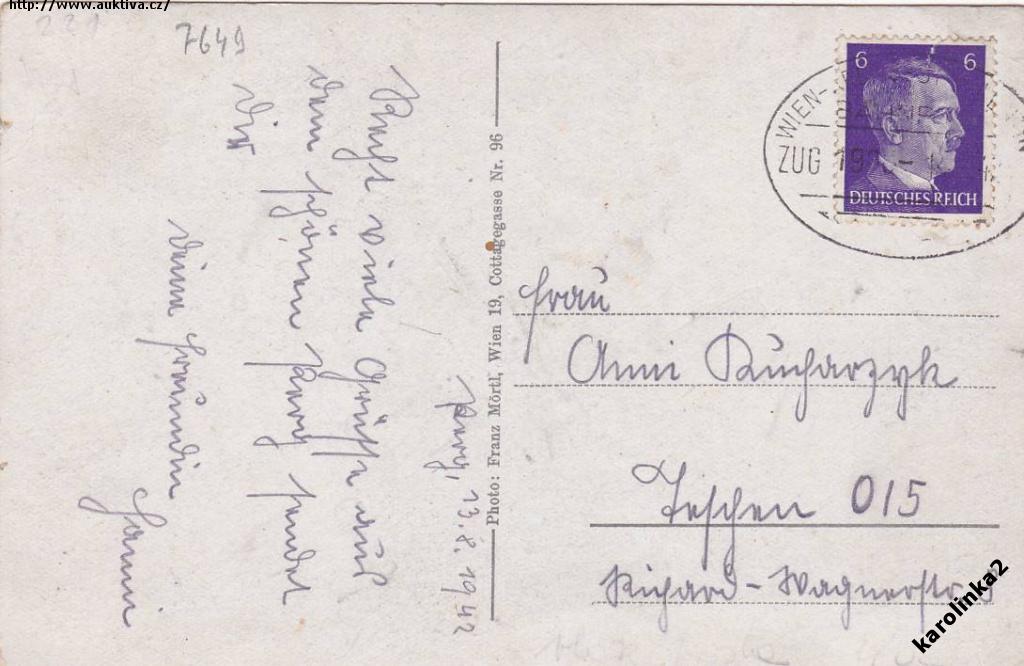 http://www.auktiva.cz/
7649
Perg, 13.8.1942
Recht viele Grüsse aus
dem schönen Perg sendet
Dir
deine Freundin
Hanni
Photo: Franz Mörtl, Wien 19, Cottagegasse Nr. 96
6 6
DEUTSCHES REICH
WIEN-
ZUG
Frau
Anni Kucharzyk
Teschen O/S
Richard-Wagnerstr. 8
karolinka2